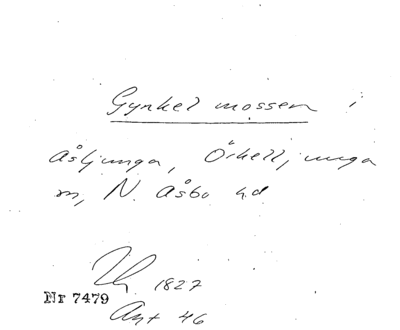 Gynkel mossen i
Åsljunga, Örkelljunga
m, N. Åsbo hd
1827
Nr 7479
Ant 46